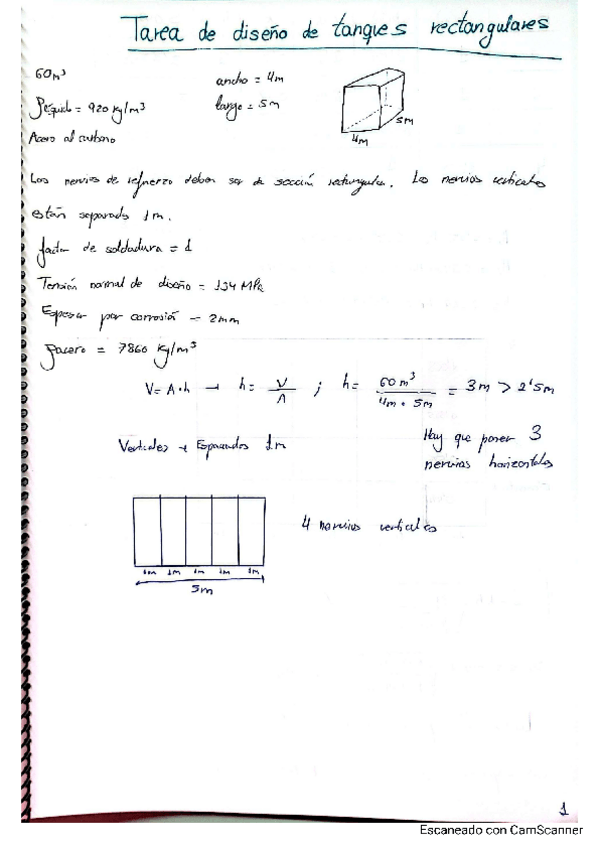 Tarea de diseño de tanques rectangulares
60m³
ρlíquido = 920 Kg/m³
Acero al carbono
ancho = 4m
largo = 5m
5m
4m
Los nervios de refuerzo deben ser de sección rectangular. Los nervios verticales
están separados 1m.
factor de soldadura = 1
Tensión normal de diseño = 134 MPa
Espesor por corrosión = 2mm
ρacero = 7860 Kg/m³
V = A·h → h = V/A ; h = 60m³/4m·5m = 3m > 2'5m
Verticales → Espaciados 1m
Hay que poner 3
nervios horizontales
4 nervios verticales
1m 1m 1m 1m 1m
5m
1
Escaneado con CamScanner